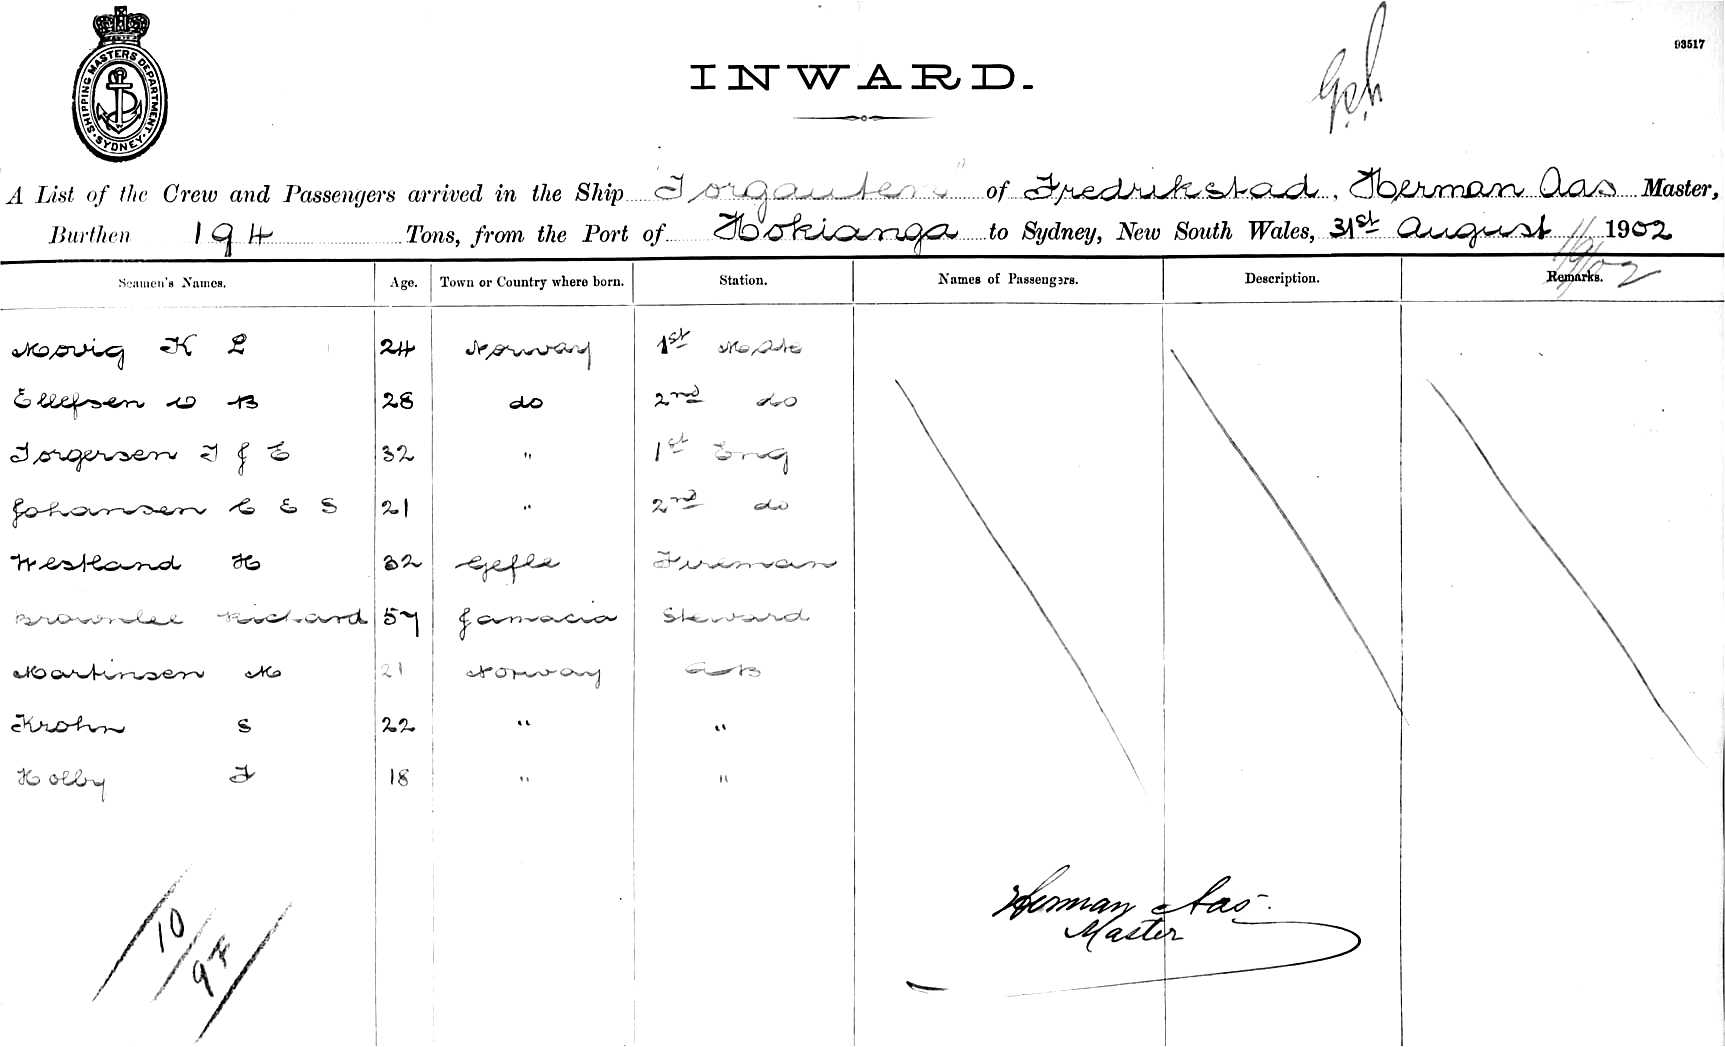 SHIPPING MASTERS DEPARTMENT
SYDNEY
93517
INWARD.
A List of the Crew and Passengers arrived in the Ship "Torgauten" of Fredrikstad, Herman Aas Master,
Burthen 194 Tons, from the Port of Hokianga to Sydney, New South Wales, 31st August 1902
1/9/02
Seamen's Names. Age. Town or Country where born. Station. Names of Passengers. Description. Remarks.
Movig K L 24 Norway 1st Mate
Ellefsen O B 28 do 2nd do
Torgersen T J E 32 " 1st Eng
Johansen C E S 21 " 2nd do
Westland H 32 Gefle Fireman
Brownlee Richard 57 Jamacia Steward
Martinsen M 21 Norway AB
Krohn S 22 " "
Holby T 18 " "
Herman Aas
Master
10